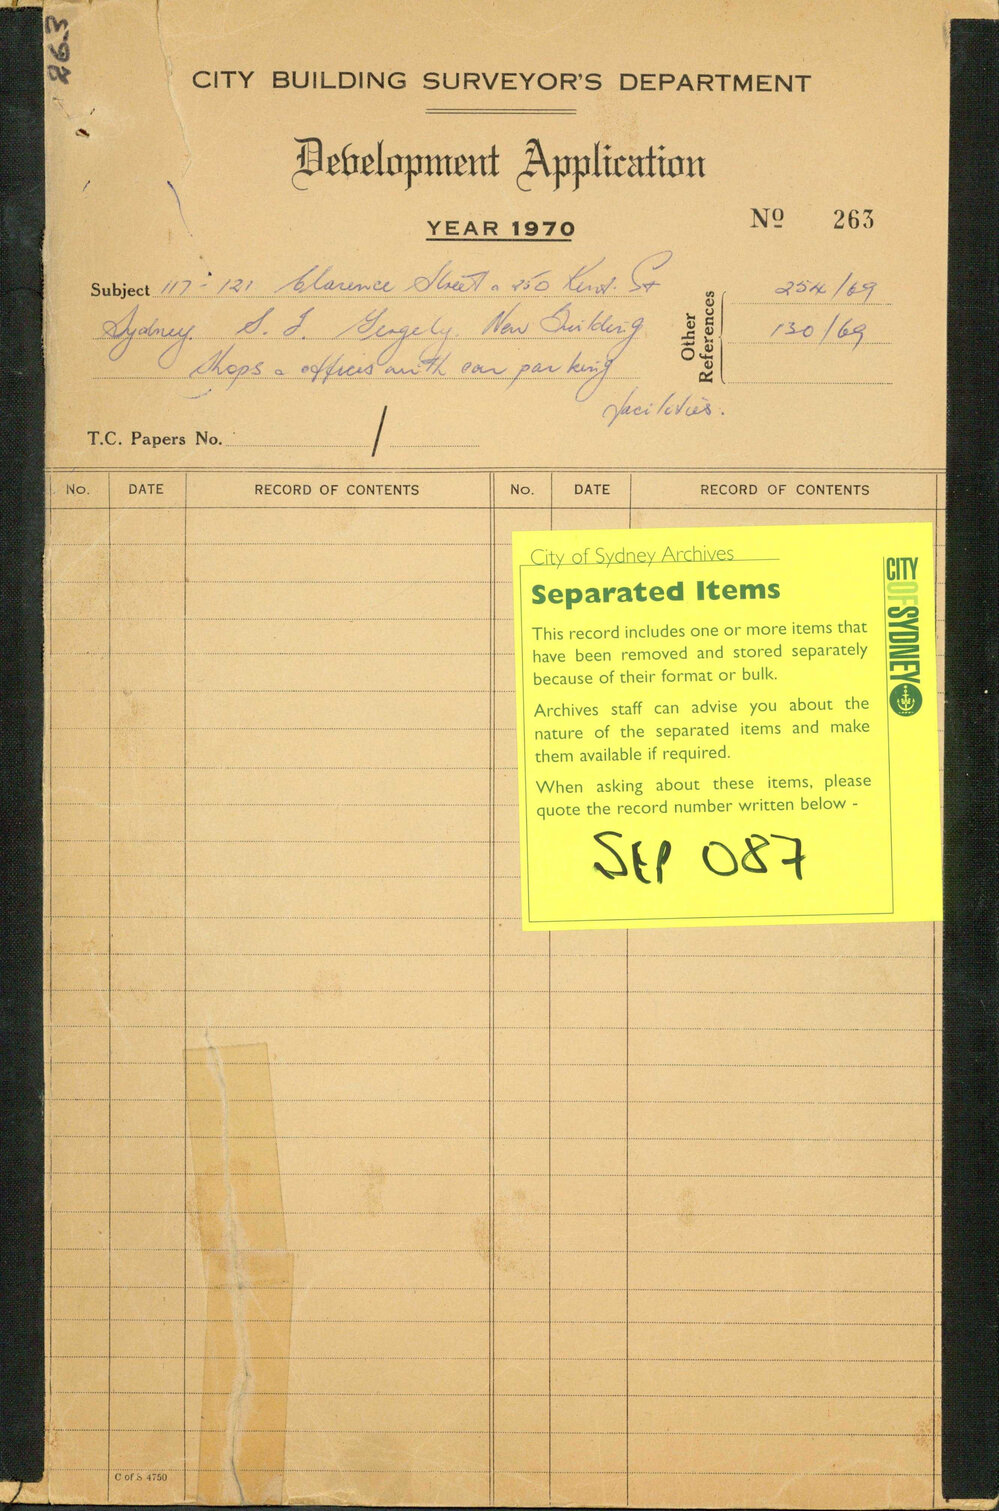 263
CITY BUILDING SURVEYOR'S DEPARTMENT
Development Application
YEAR 1970
Nº 263
Subject 117-121 Clarence Street & 250 Kent. St
Sydney. S. J. Gergely. New Building
Shops & offices with car parking
facilities.
Other References
254/69
130/69
T.C. Papers No. /
No. DATE RECORD OF CONTENTS No. DATE RECORD OF CONTENTS
City of Sydney Archives
Separated Items
This record includes one or more items that
have been removed and stored separately
because of their format or bulk.
Archives staff can advise you about the
nature of the separated items and make
them available if required.
When asking about these items, please
quote the record number written below -
SEP 087
CITY OF SYDNEY
C of S 4750